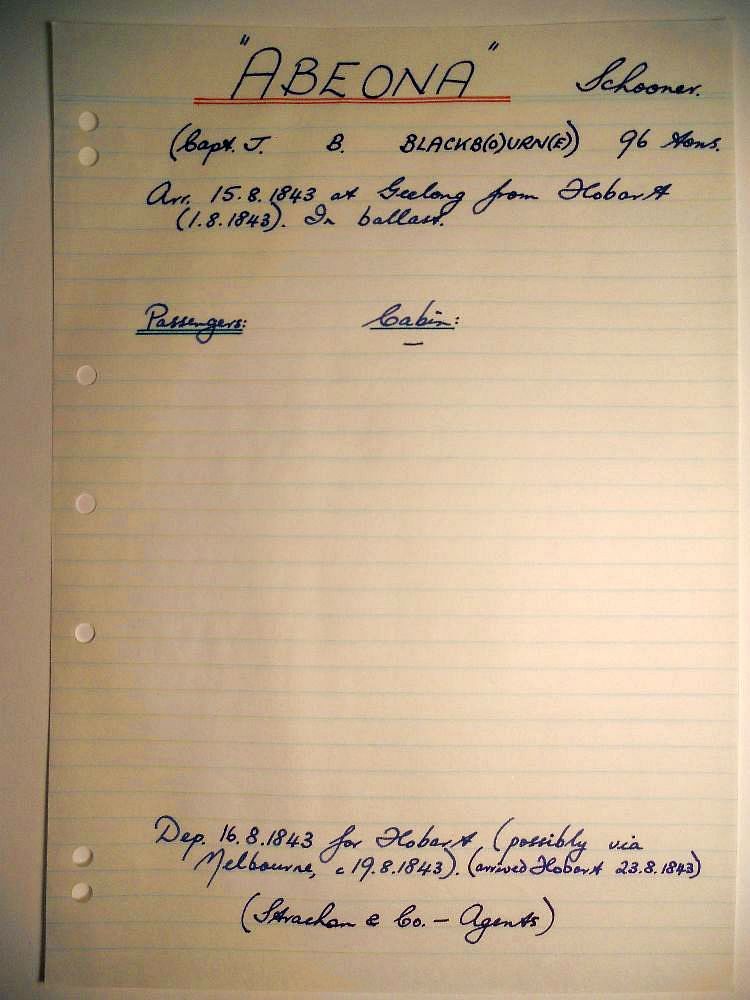 "ABEONA" Schooner.
(Capt. J. B. BLACKB(O)URN(E)) 96 tons.
Arr. 15.8.1843 at Geelong from Hobart
(1.8.1843). In ballast.
Passengers: Cabin:
—
Dep. 16.8.1843 for Hobart (possibly via
Melbourne, c 19.8.1843). (arrived Hobart 23.8.1843)
(Strachan & Co. — Agents)